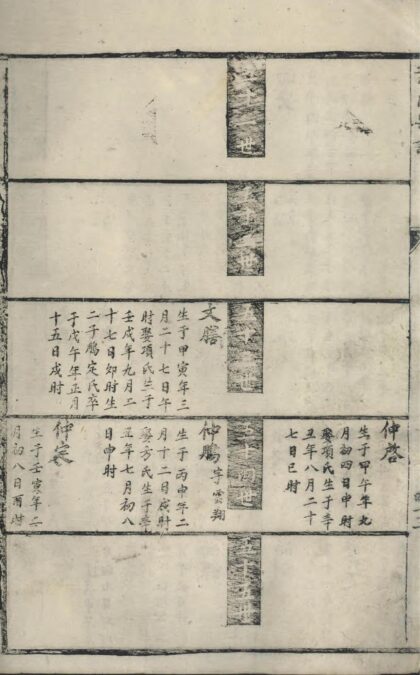 五十一世
五十二世
五十三世
文勝
生于甲寅年三
月二十七日午
时娶項氏生于
壬戌年九月二
十七日卯时生
二子鵬定氏卒
于戊午年正月
十五日戌时
五十四世
仲啓
生于甲午年九
月初四日申时
娶項氏生于辛
丑年八月二十
七日巳时
仲鵬字雲翔
生于丙申年二
月十二日寅时
娶方氏生于辛
丑年七月初八
日申时
仲定
生于壬寅年二
月初八日酉时
五十五世